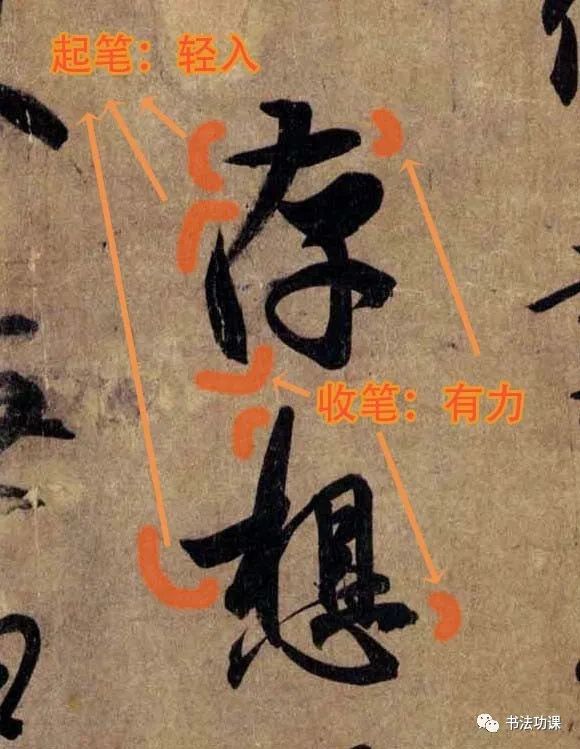 起笔：轻入
存
收笔：有力
想
书法功课